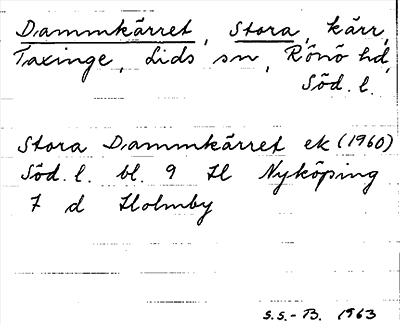 Dammkärret, Stora, kärr,
Taxinge, Lids sn, Rönö hd,
Söd. l.
Stora Dammkärret ek (1960)
Söd. l. bl. 9 H Nyköping
7 d Holmby
S.S.-B. 1963